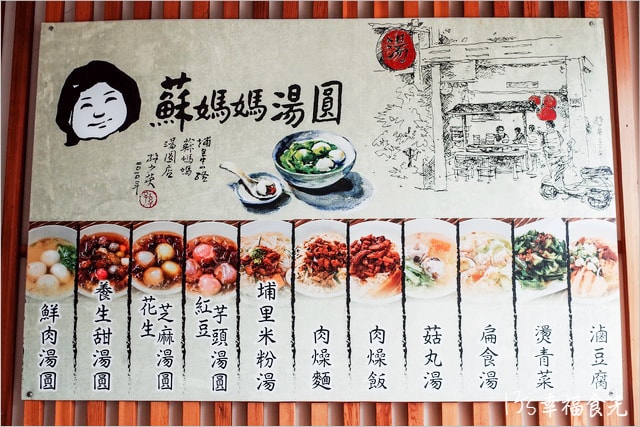 蘇媽媽湯圓
湯
埔里
蘇媽媽
湯圓店
鮮肉湯圓
養生甜湯圓
芝麻湯圓
花生
芋頭湯圓
紅豆
埔里米粉湯
肉燥麵
肉燥飯
菇丸湯
扁食湯
燙青菜
滷豆腐
135幸福食光